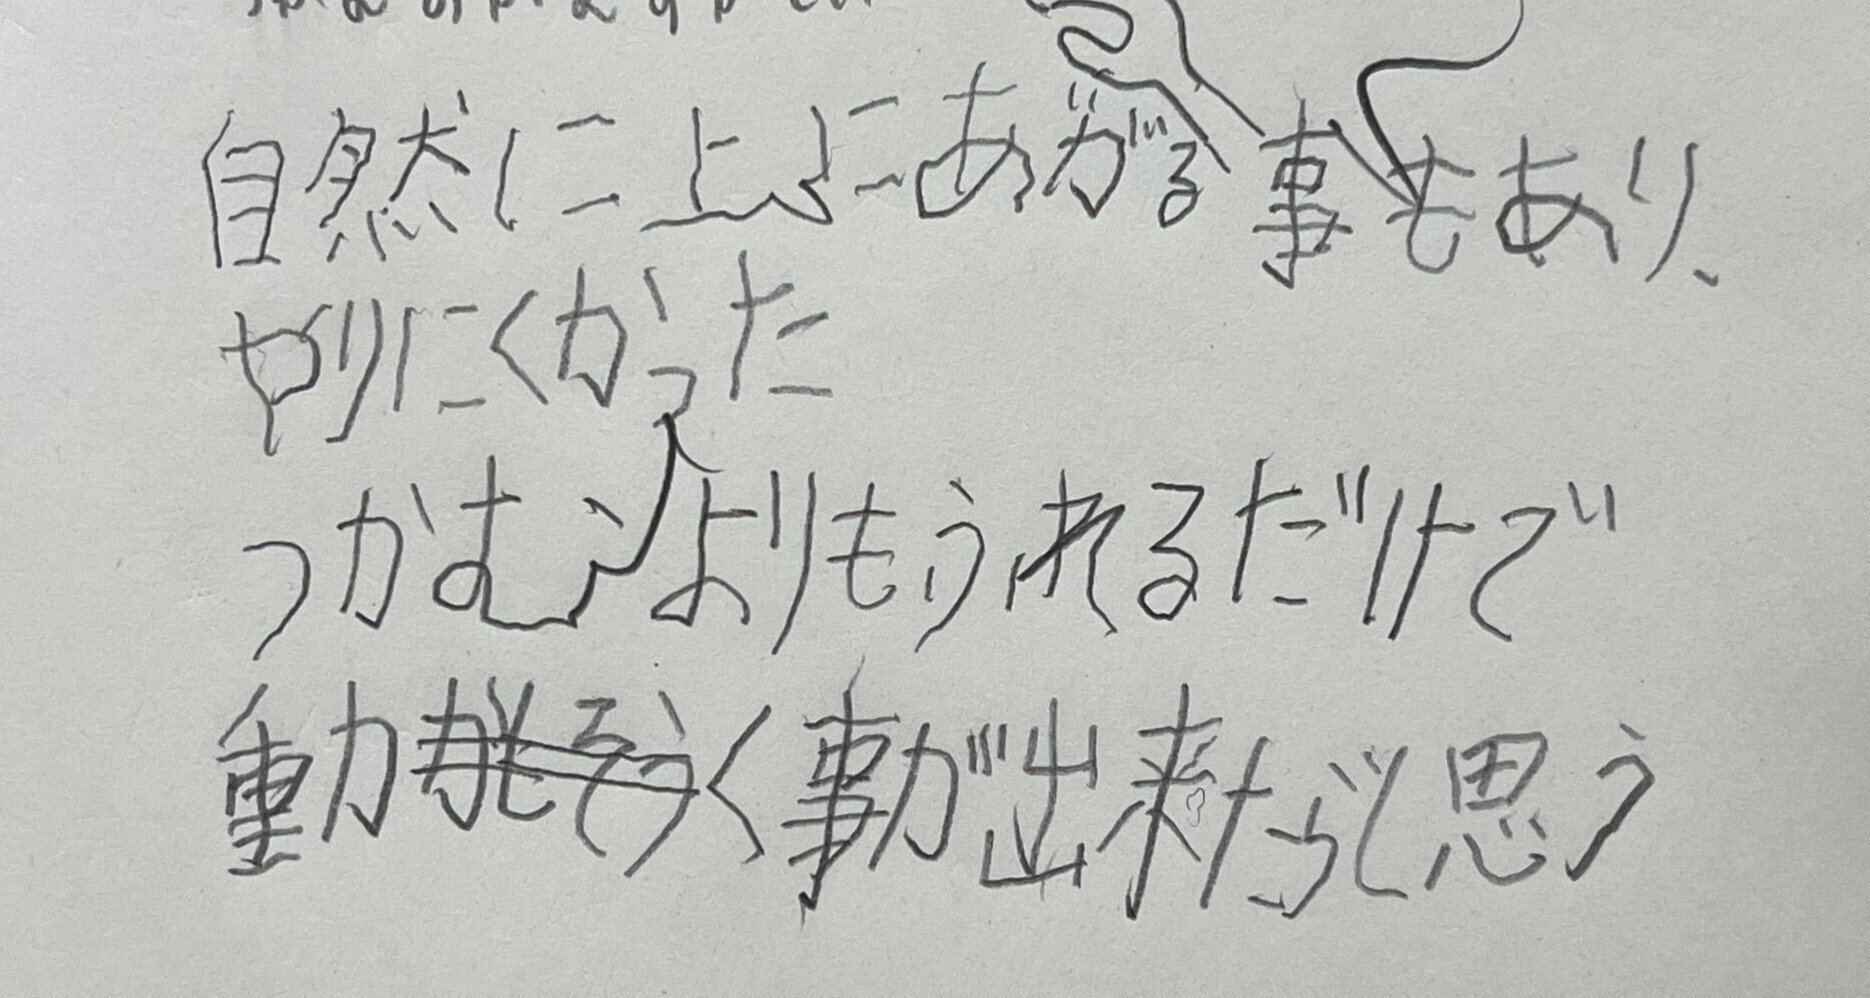 自然に上にあがる事もあり、
やりにくかった
つかむよりもふれるだけで
動く事が出来たらと思う